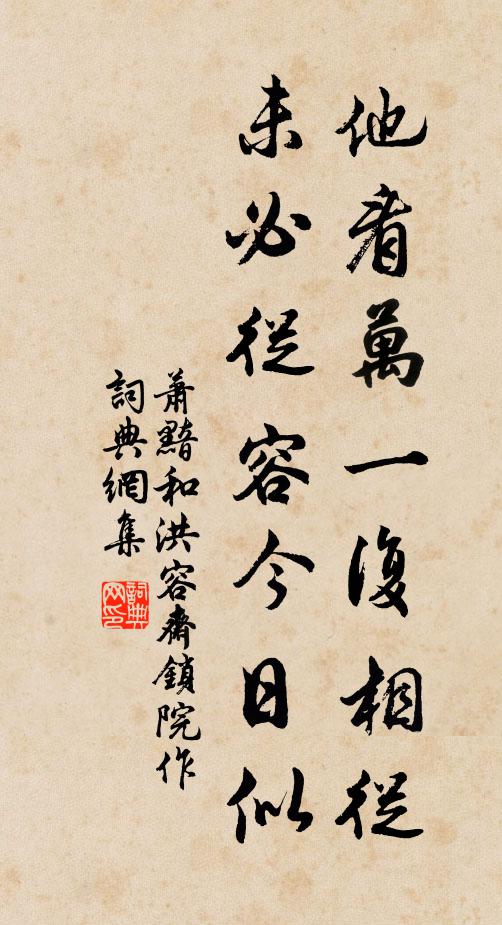 他看萬一復相從
未必從容今日似
蕭黯和洪容齋鎖院作
詞典網集
詞典
网印